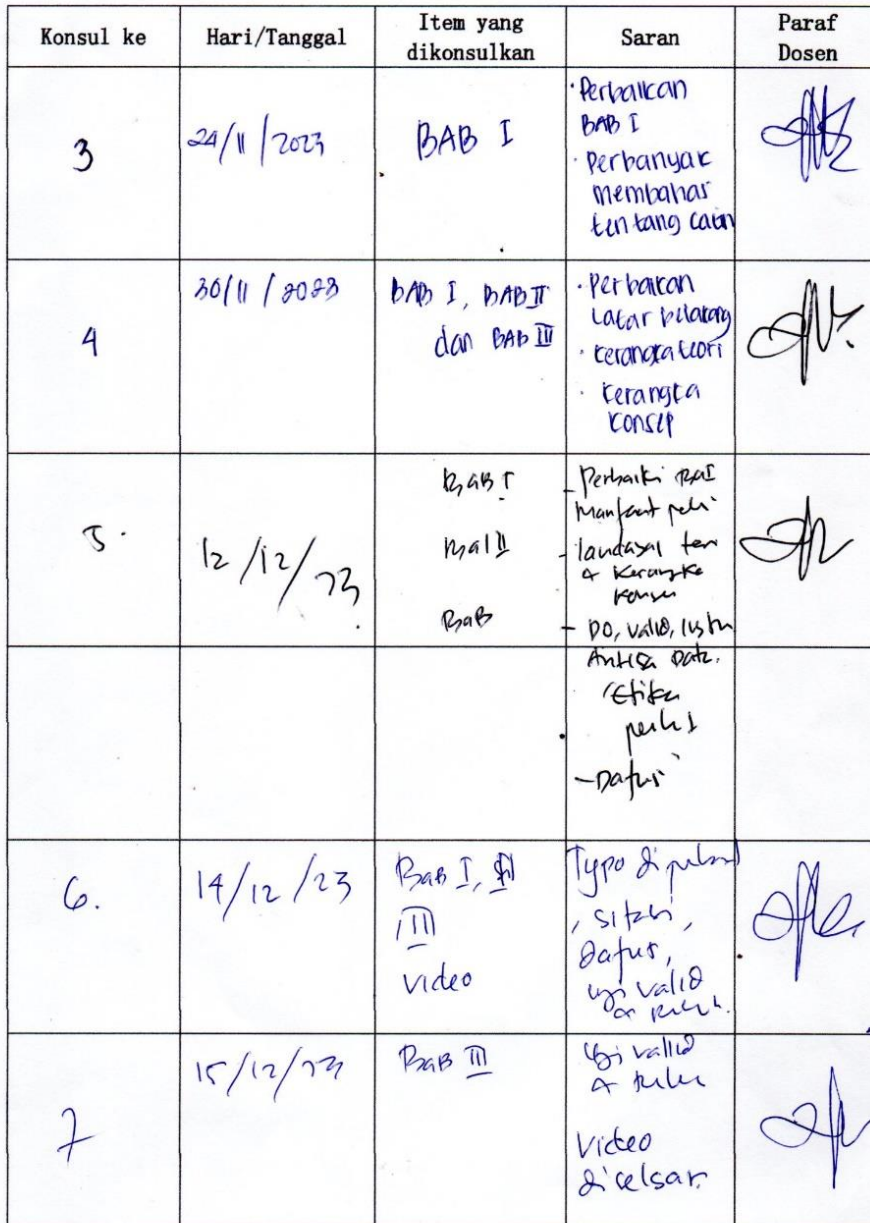 Konsul ke
Hari/Tanggal
Item yang
dikonsulkan
Saran
Paraf
Dosen
3
24/11/2023
BAB I
· Perbaikan
BAB I
· Perbanyak
membahas
tentang catin
4
30/11/2023
BAB I, BAB II
dan BAB III
· Perbaikan
Latar belakang
· kerangka teori
· kerangka
konsep
5.
12/12/23
BAB I
Bab II
BaB
- Perbaiki Bab I
Manfaat
- landasan teori
& kerangka
konsep
- DO, valid,
Data.
Etika
- Dafus
6.
14/12/23
Bab I, II
III
video
Typo di
, sitasi,
dafus,
uji valid
&
7
15/12/23
BaB III
Uji valid
&
Video